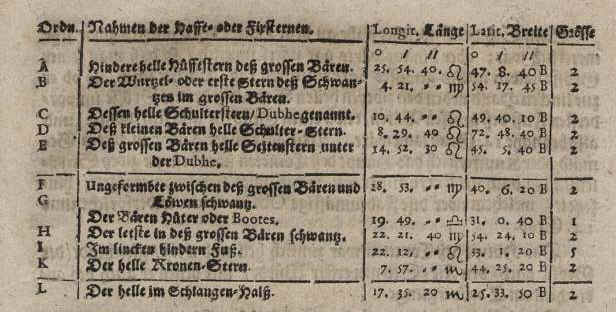 Ordn. Nahmen der Hafft- oder Firsternen. Longit. Länge Latit. Breite Grösse
o / // o / //
A Hindere helle Hüffestern deß grossen Bären. 25. 54. 40. ♌ 47. 8. 40 B 2
B Der Wurtzel- oder erste Stern deß Schwan-
tzen im grossen Bären. 4. 21. " " ♍ 54. 17. 45 B 2
C Dessen helle Schulterstern/ Dubhe genannt. 10. 44. " " ♌ 49. 40. 10 B 2
D Deß kleinen Bären helle Schulter-Stern. 8. 29. 40 ♌ 72. 48. 40 B 2
E Deß grossen Bären helle Seitenstern unter
der Dubhe. 14. 52. 30 ♌ 45. 5. 40 B 2
F Ungeformbte zwischen deß grossen Bären und 28. 53. " " ♍ 40. 6. 20 B 2
G Löwen schwantz.
Der Bären Hüter oder Bootes. 19. 49. " " ♎ 31. 0. 40 B 1
H Der letste in deß grossen Bären schwantz. 22. 21. 40 ♍ 54. 24. 10 B 2
I Im lincken hindern Fuß. 22. 12. " " ♌ 53. 1. 20 B 5
K Der helle Kronen-Stern 7. 57. " " ♏ 44. 25. 20 B 2
L Der helle im Schlangen-Halß. 17. 35. 20 ♏ 25. 33. 50 B 2